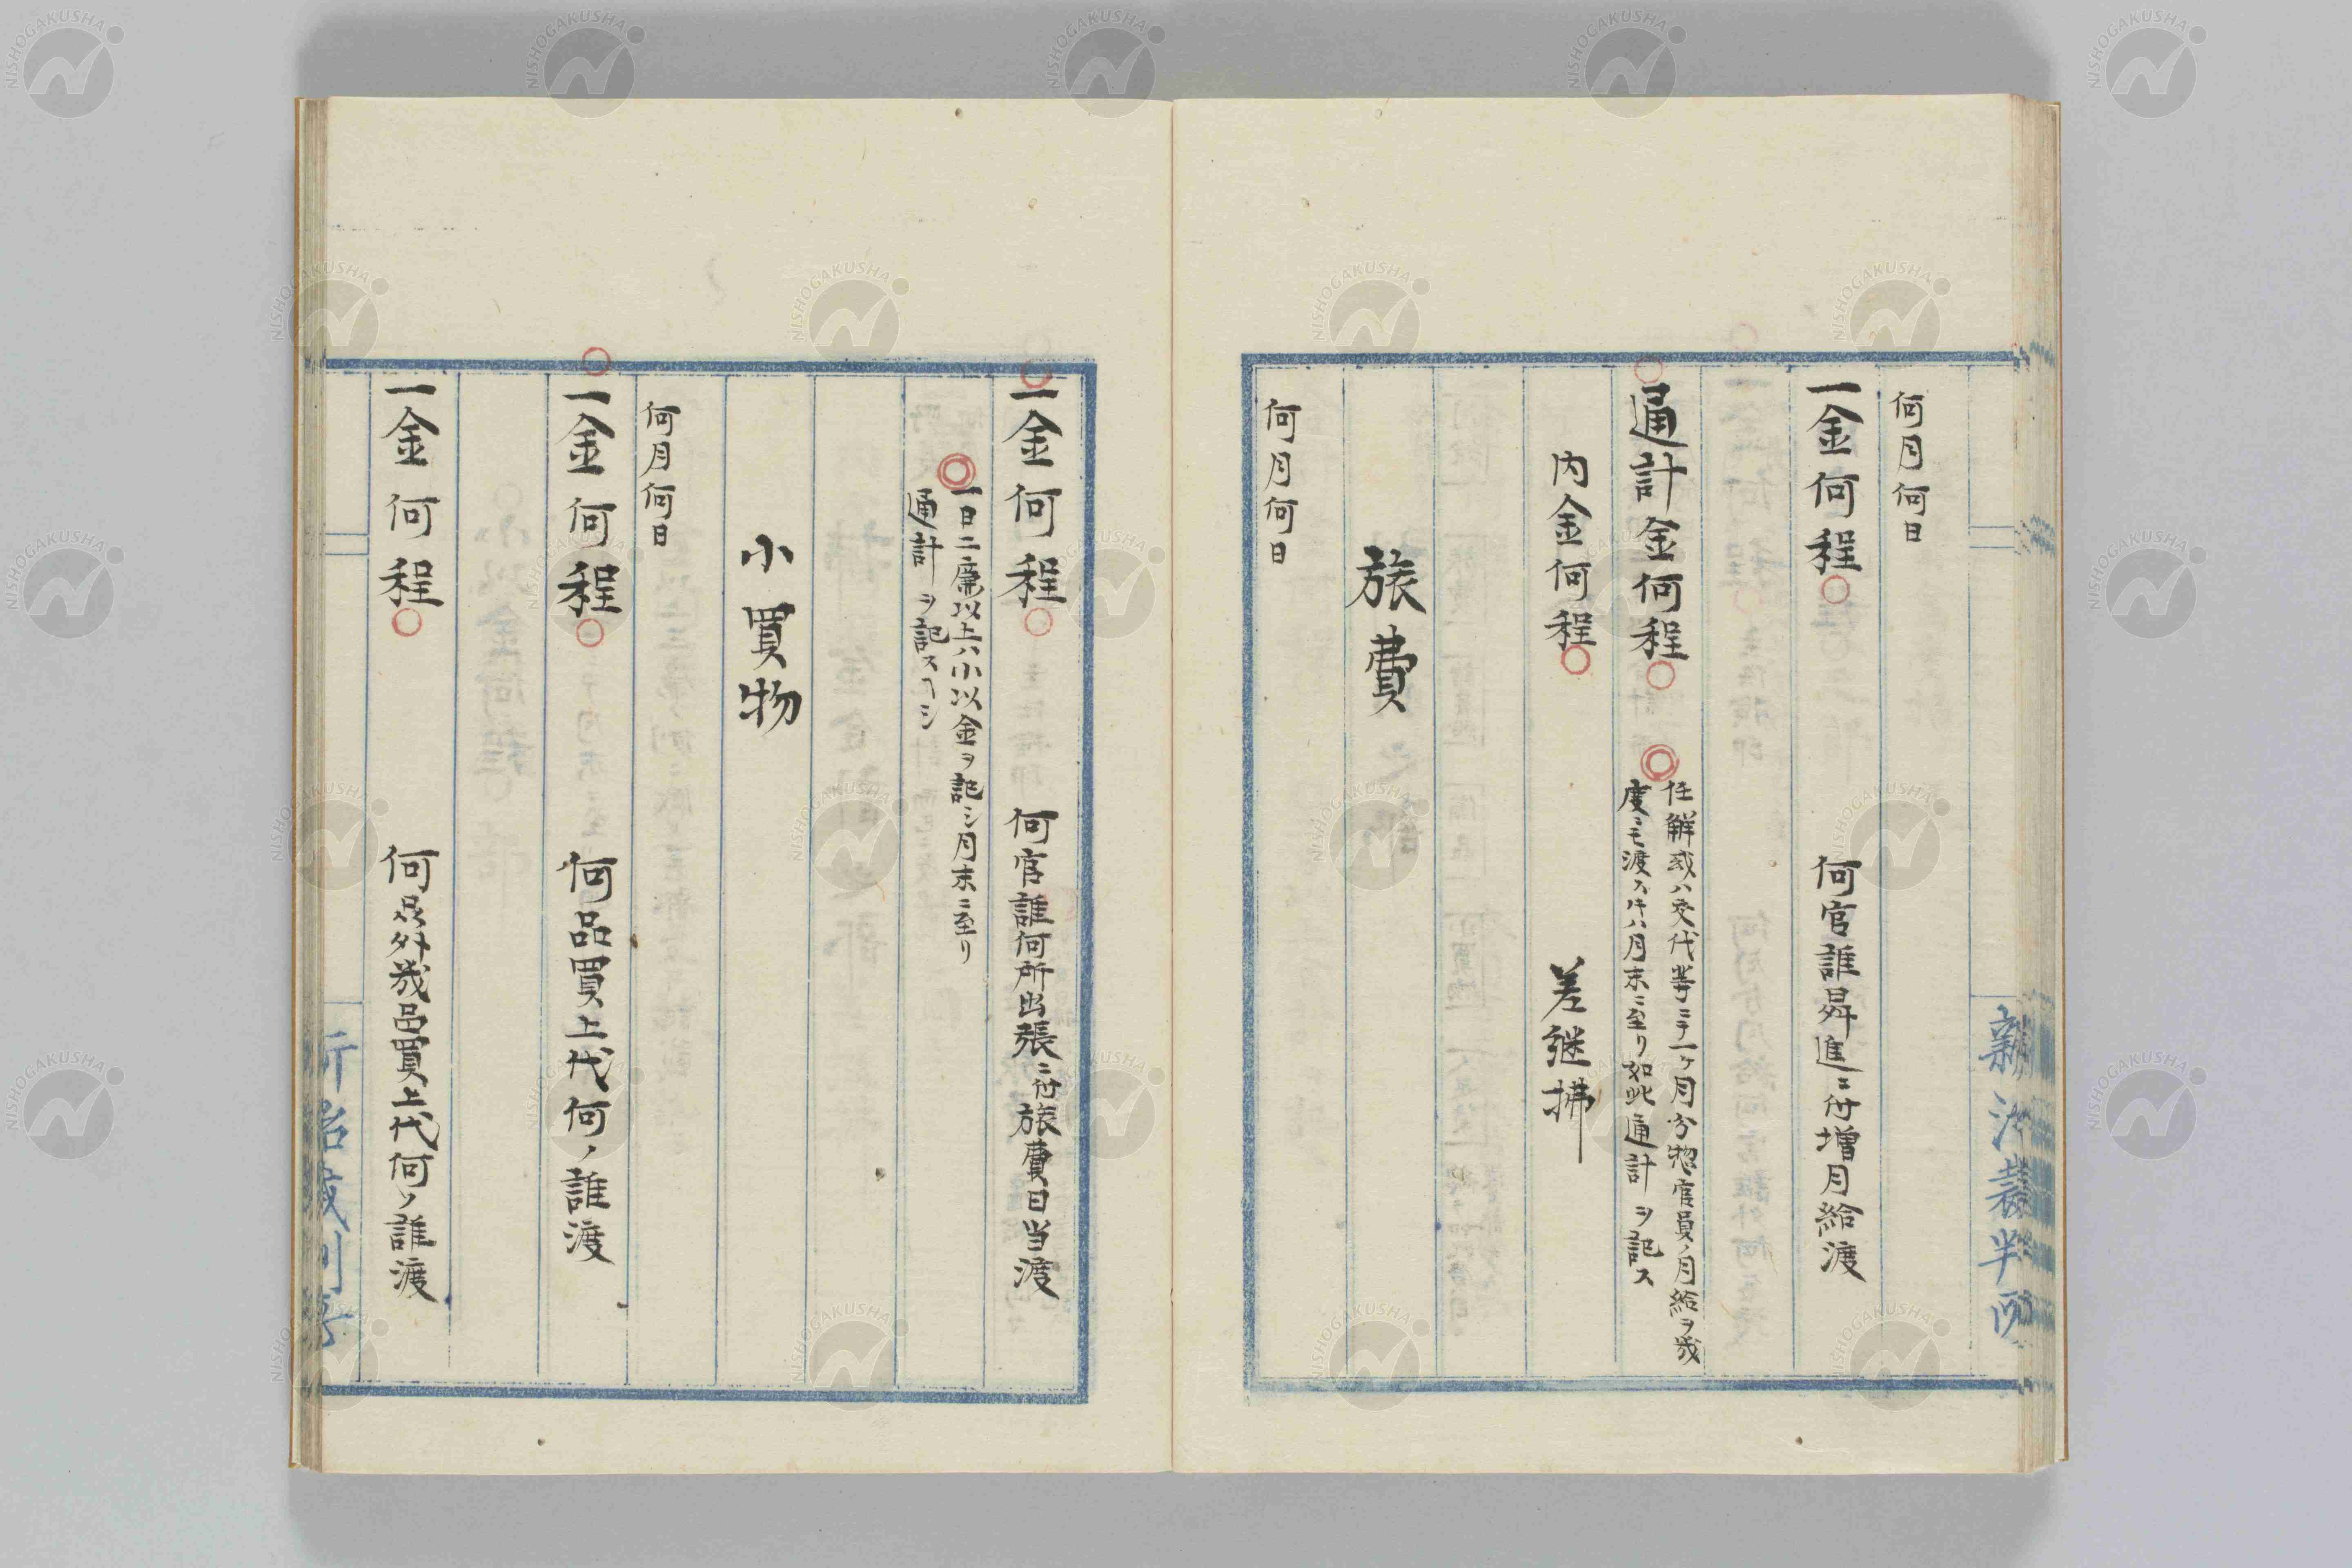 何月何日
一金何程 何官誰昇進ニ付増月給渡
通計金何程
任解或ハ交代等ニテ一ヶ月分惣官員ノ月給ヲ幾
度ニモ渡スキハ月末ニ至リ如此通計ヲ記ス
内金何程 差継拂
旅費
何月何日
一金何程 何官誰何所出張ニ付旅費日当渡
一日ニ廉以上ハ小以金ヲ記シ月末ニ至リ
通計ヲ記スヘシ
小買物
何月何日
一金何程 何品買上代何ノ誰渡
一金何程 何品外幾品買上代何ノ誰渡
NISHOGAKUSHA